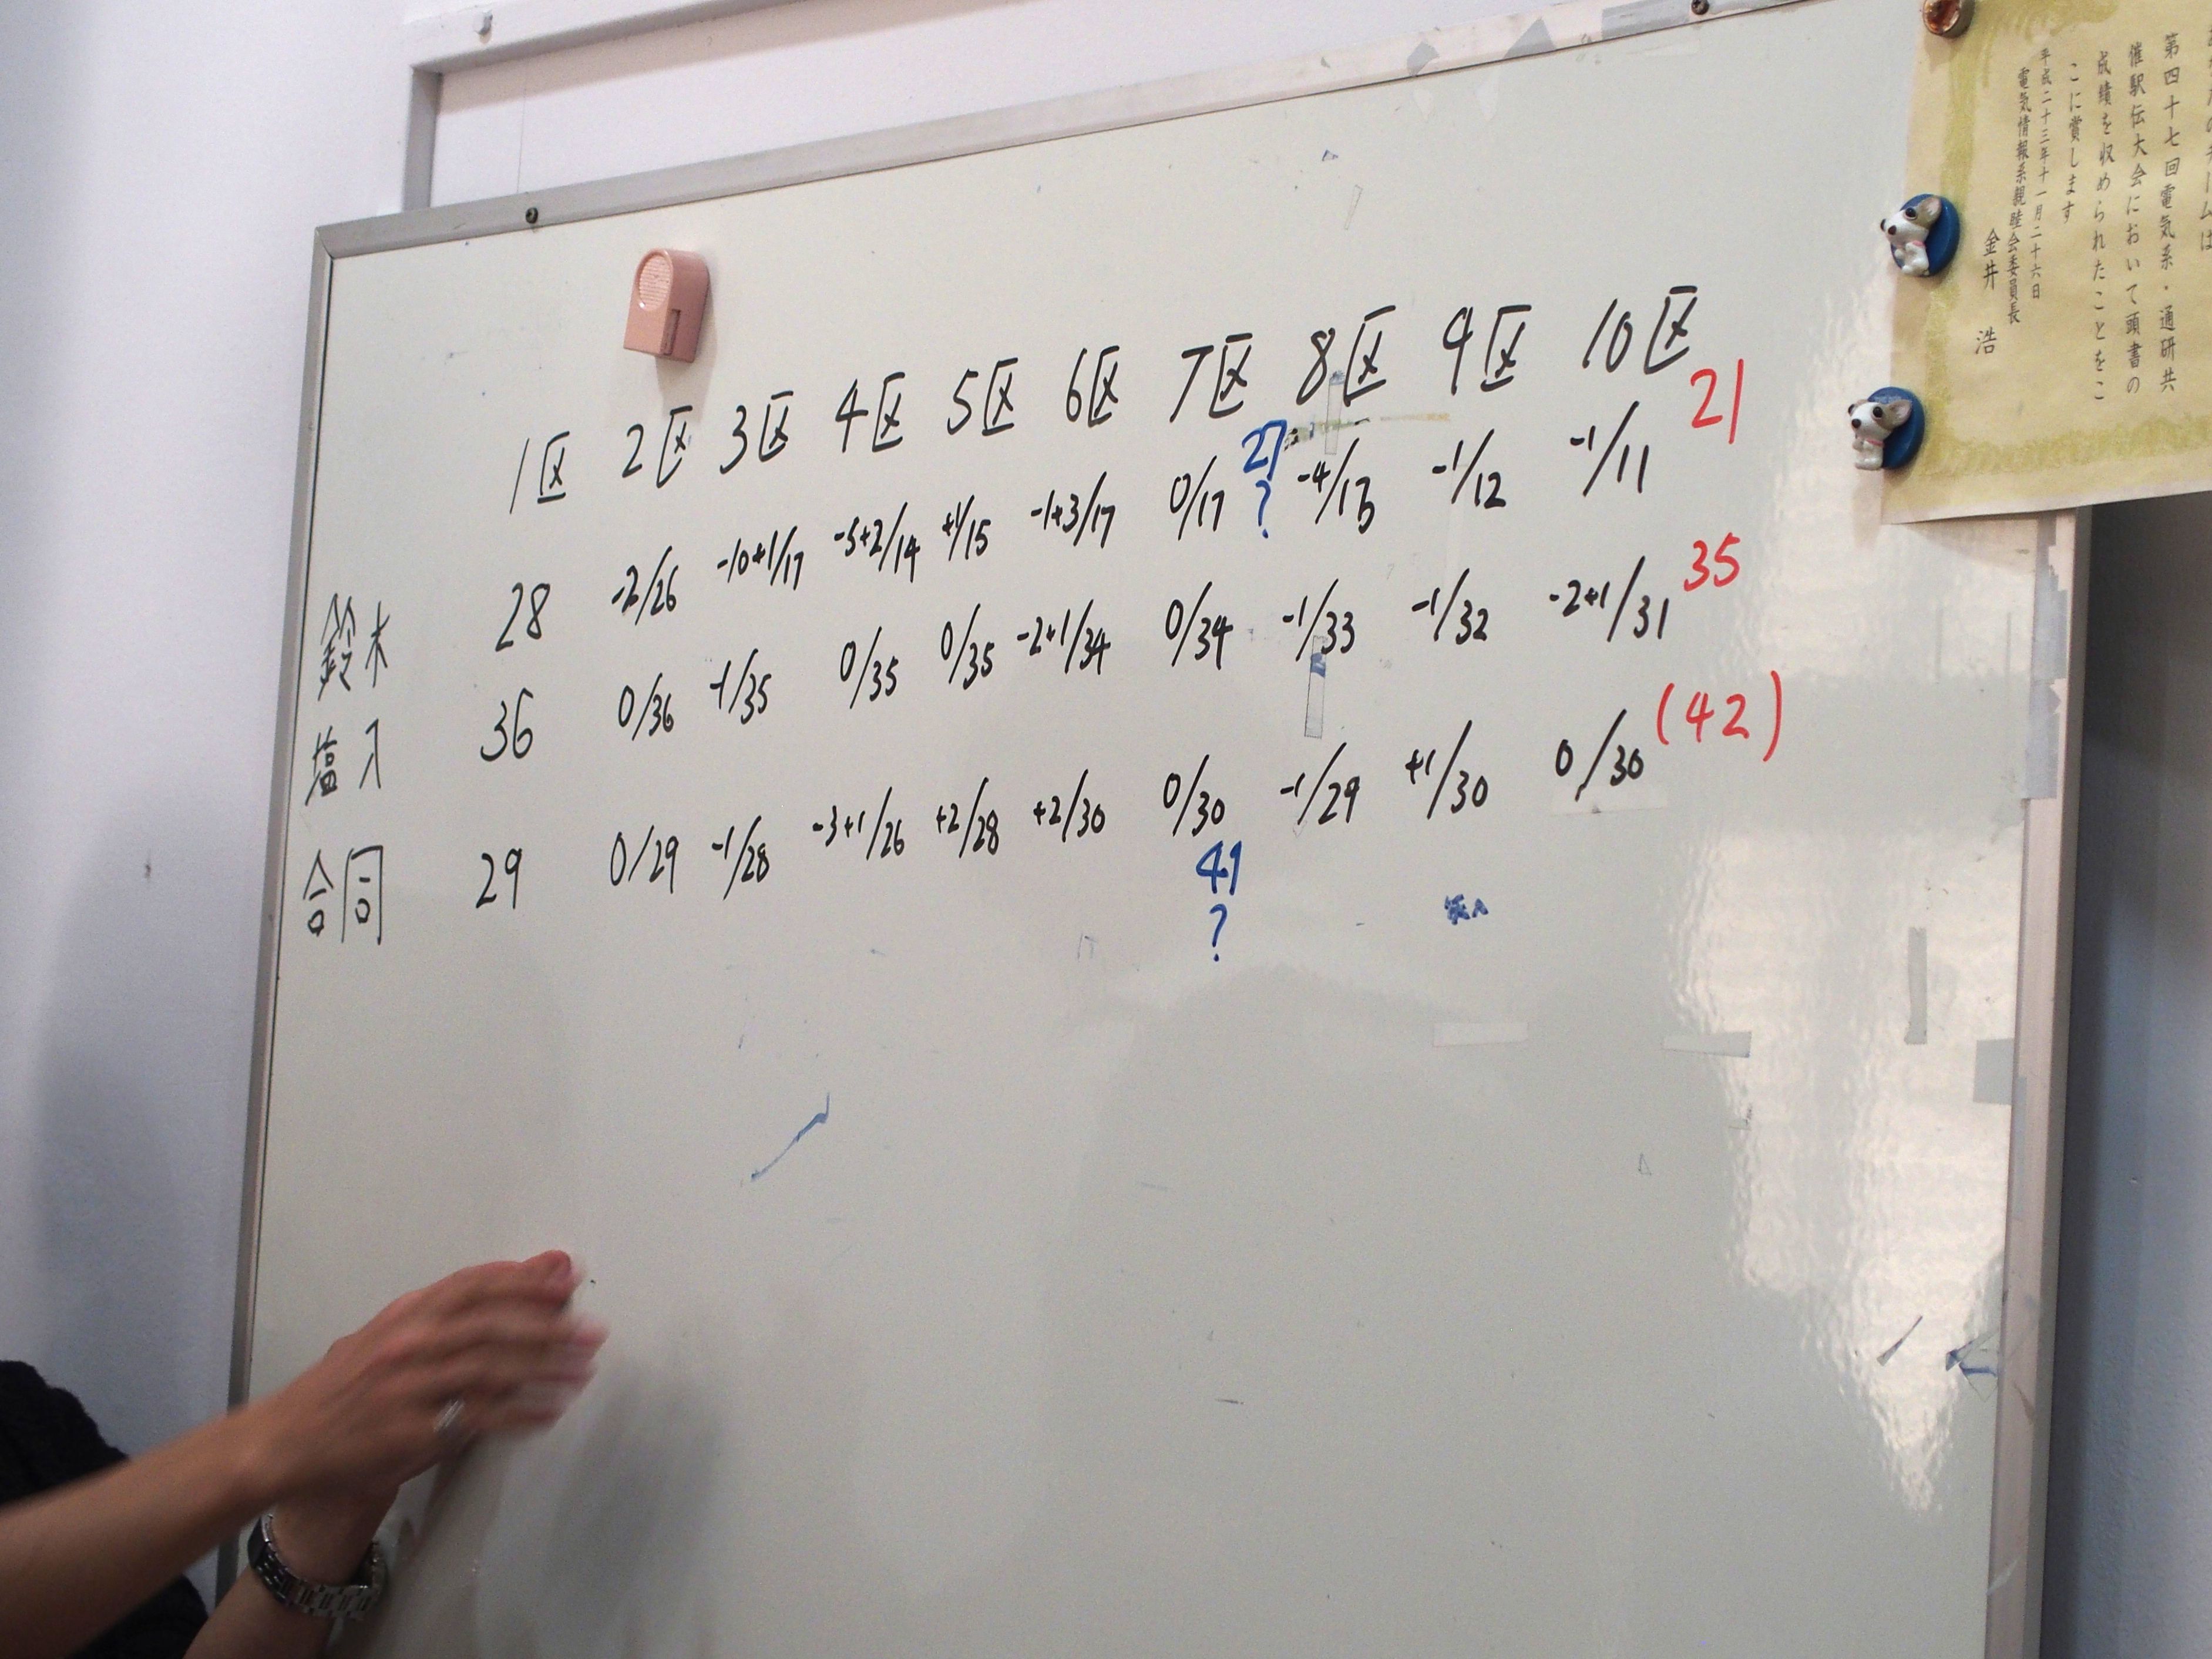 1区 2区 3区 4区 5区 6区 7区 8区 9区 10区
鈴木 28 -2/26 -10+1/17 -5+2/14 +1/15 -1+3/17 0/17 27? -4/13 -1/12 -1/11 21
塩入 36 0/36 -1/35 0/35 0/35 -2+1/34 0/34 -1/33 -1/32 -2+1/31 35
合同 29 0/29 -1/28 -3+1/26 +2/28 +2/30 0/30 -1/29 +1/30 0/30 (42)
41
?
第四十七回電気系・通研共
催駅伝大会において頭書の
成績を収められたことをこ
こに賞します
平成二十三年十一月二十六日
電気情報系親睦会委員長
金井 浩